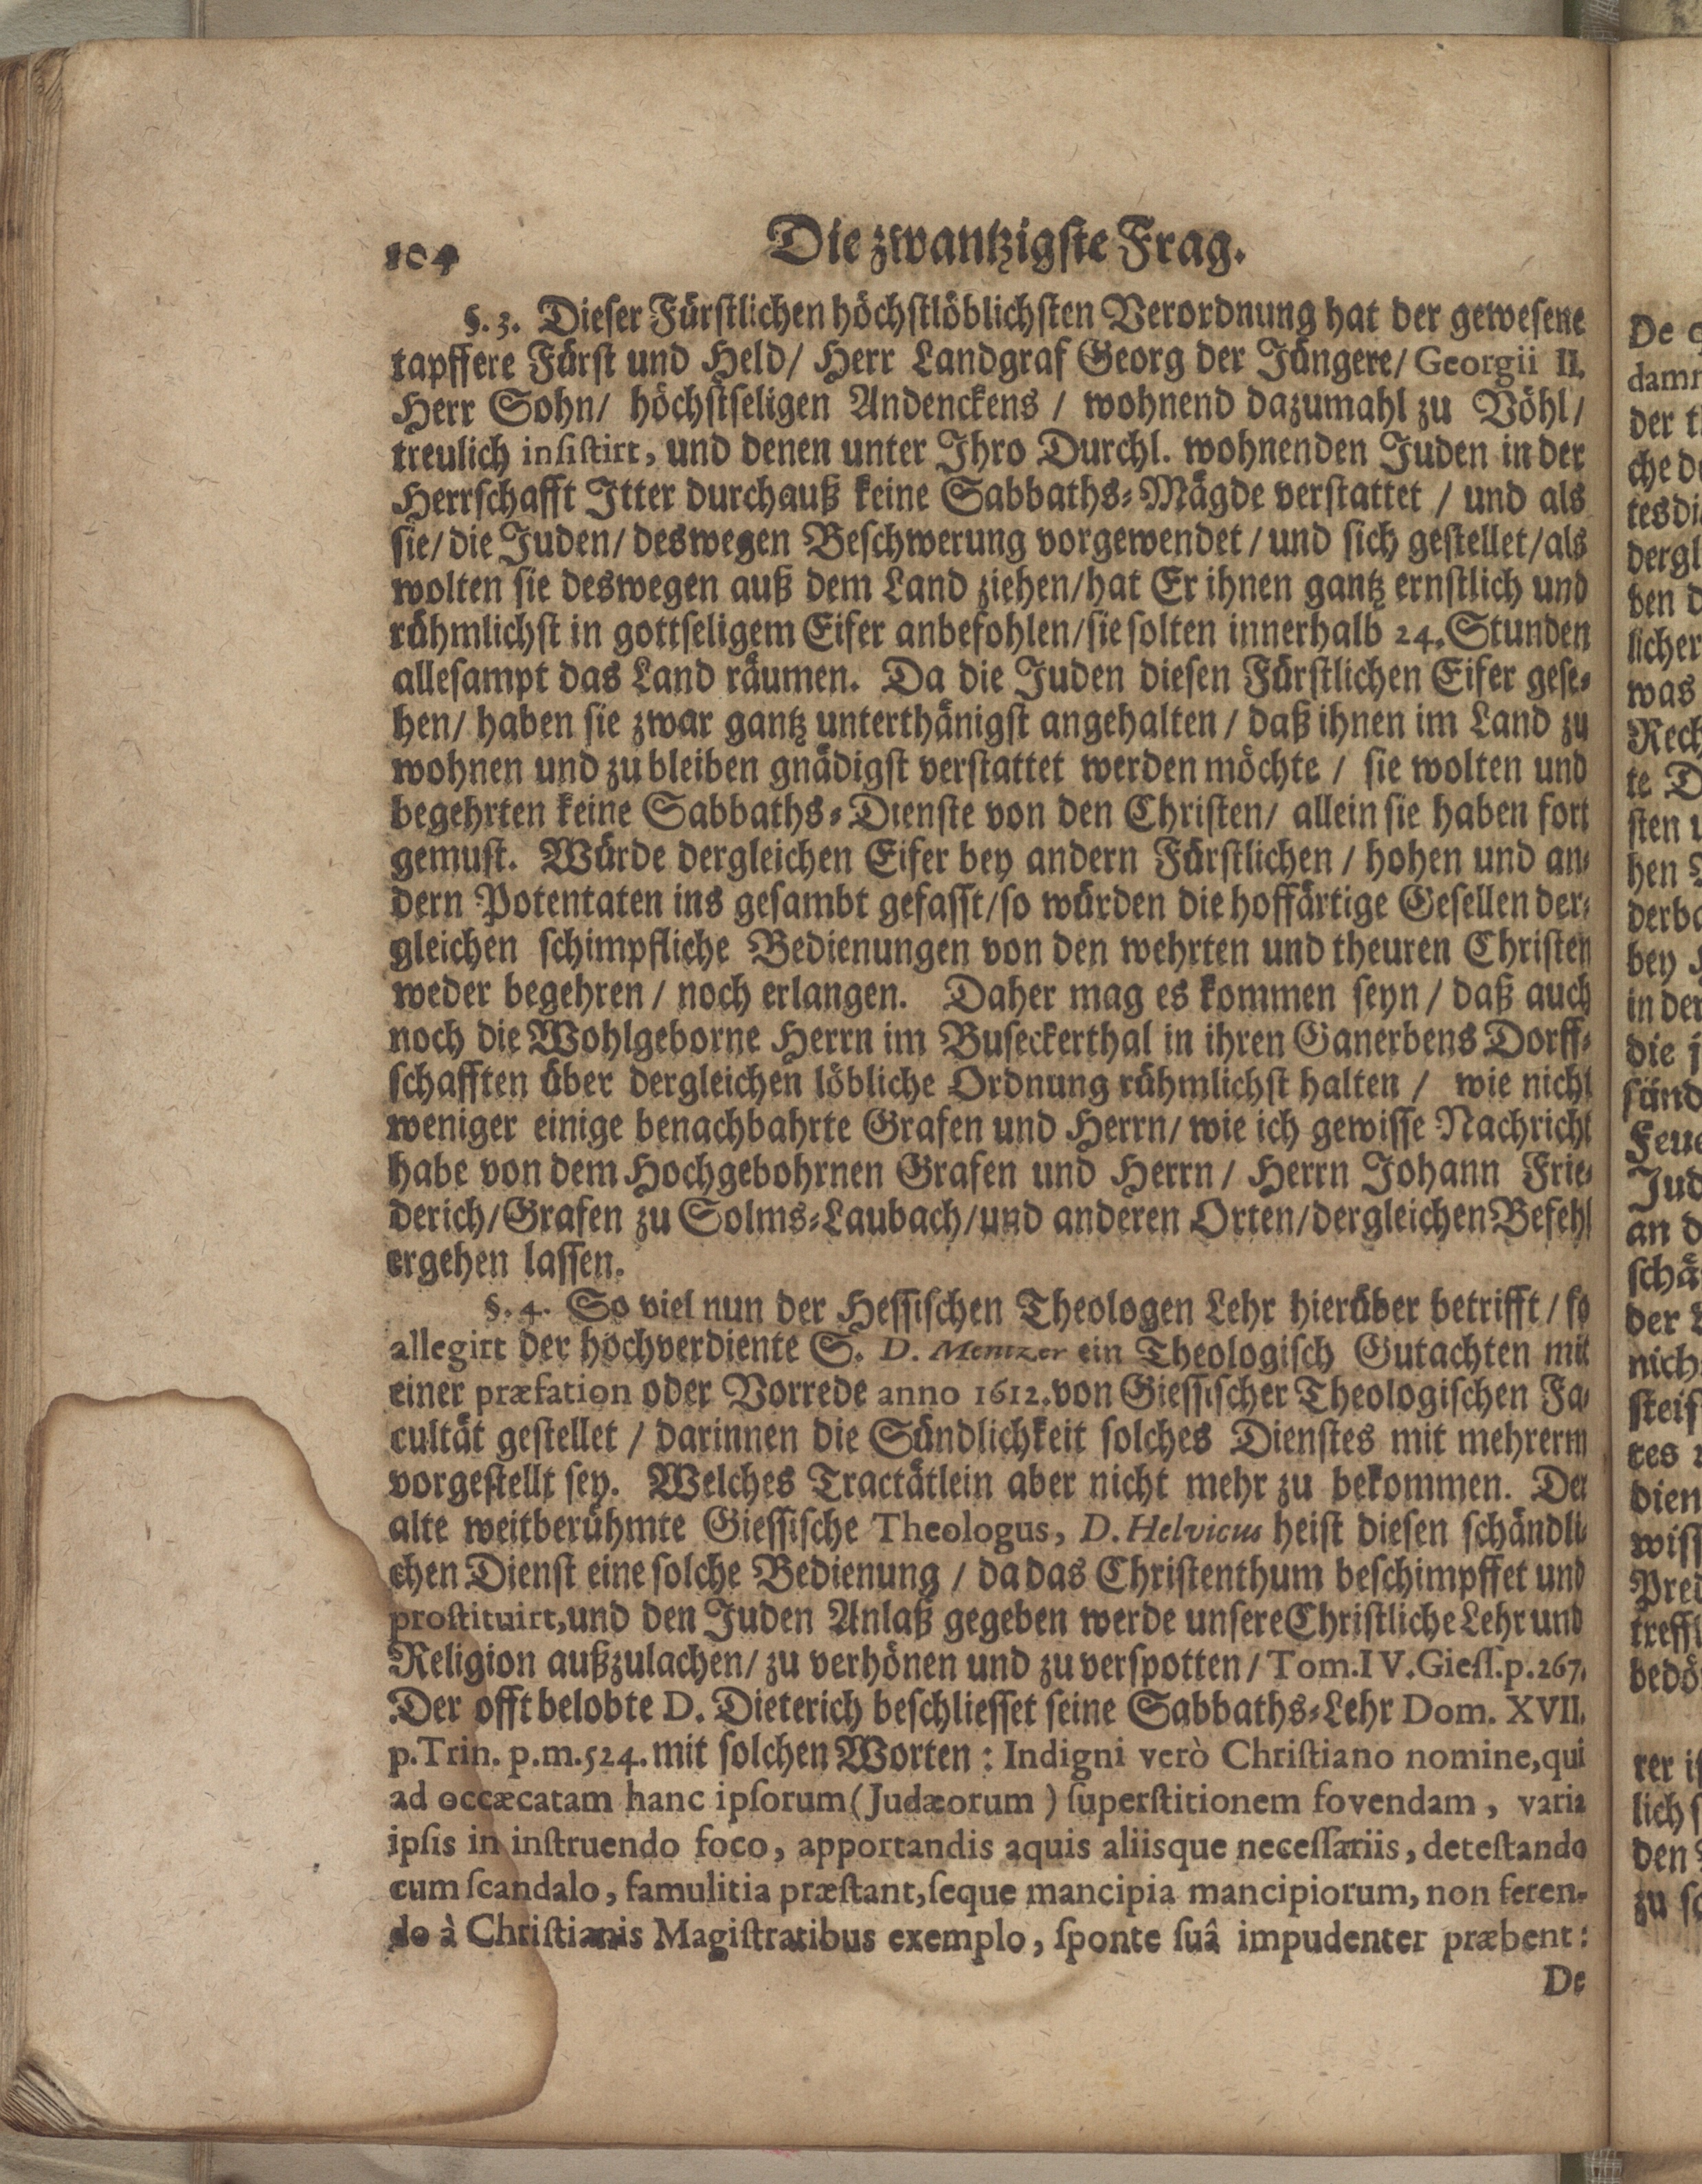 104
Die zwantzigste Frag.
§. 3. Dieser Fürstlichen höchstlöblichsten Verordnung hat der gewesene
tapffere Fürst und Held/ Herr Landgraf Georg der Jüngere/ Georgii II.
Herr Sohn/ höchstseligen Andenckens / wohnend dazumahl zu Vöhl/
treulich insistirt, und denen unter Ihro Durchl. wohnenden Juden in der
Herrschafft Itter durchauß keine Sabbaths-Mägde verstattet / und als
sie/ die Juden/ deswegen Beschwerung vorgewendet/ und sich gestellet/als
wolten sie deswegen auß dem Land ziehen/hat Er ihnen gantz ernstlich und
rühmlichst in gottseligem Eifer anbefohlen/sie solten innerhalb 24. Stunden
allesampt das Land räumen. Da die Juden diesen Fürstlichen Eifer gese-
hen/ haben sie zwar gantz unterthänigst angehalten / daß ihnen im Land zu
wohnen und zu bleiben gnädigst verstattet werden möchte / sie wolten und
begehrten keine Sabbaths-Dienste von den Christen/ allein sie haben fort
gemust. Würde dergleichen Eifer bey andern Fürstlichen / hohen und an-
dern Potentaten ins gesambt gefasst/so würden die hoffärtige Gesellen der-
gleichen schimpfliche Bedienungen von den wehrten und theuren Christen
weder begehren / noch erlangen. Daher mag es kommen seyn / daß auch
noch die Wohlgeborne Herrn im Buseckerthal in ihren Ganerbens Dorff-
schafften über dergleichen löbliche Ordnung rühmlichst halten / wie nicht
weniger einige benachbahrte Grafen und Herrn/ wie ich gewisse Nachricht
habe von dem Hochgebohrnen Grafen und Herrn/ Herrn Johann Frie-
derich/Grafen zu Solms-Laubach/und anderen Orten/dergleichen Befehl
ergehen lassen.
§. 4. So viel nun der Hessischen Theologen Lehr hierüber betrifft / so
allegirt der hochverdiente S. D. Mentzer ein Theologisch Gutachten mit
einer præfation oder Vorrede anno 1612. von Giessischer Theologischen Fa-
cultät gestellet / darinnen die Sündlichkeit solches Dienstes mit mehrerm
vorgestellt sey. Welches Tractätlein aber nicht mehr zu bekommen. Der
alte weitberühmte Giessische Theologus, D. Helvicus heist diesen schändli-
chen Dienst eine solche Bedienung / da das Christenthum beschimpffet und
prostituirt, und den Juden Anlaß gegeben werde unsere Christliche Lehr und
Religion außzulachen/ zu verhönen und zu verspotten/ Tom. IV. Giess. p. 267.
Der offt belobte D. Dieterich beschliesset seine Sabbaths-Lehr Dom. XVII.
p. Trin. p. m. 524. mit solchen Worten: Indigni verò Christiano nomine, qui
ad occæcatam hanc ipsorum (Judæorum) superstitionem fovendam, varia
ipsis in instruendo foco, apportandis aquis aliisque necessariis, detestando
cum scandalo, famulitia præstant, seque mancipia mancipiorum, non feren-
do à Christianis Magistratibus exemplo, sponte suâ impudenter præbent:
De
De
der
che
tesdi
dergl
ben
licher
was
Rech
te
sten
hen
bey
in der
die
Feue
Jud
an
schä
der
nich
steif
dien
Pred
treff
bedö
rer
lich
den
zu